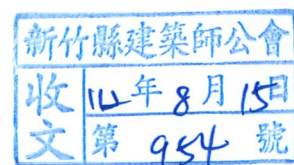 新竹縣建築師公會
收文
112年8月15日
第954號